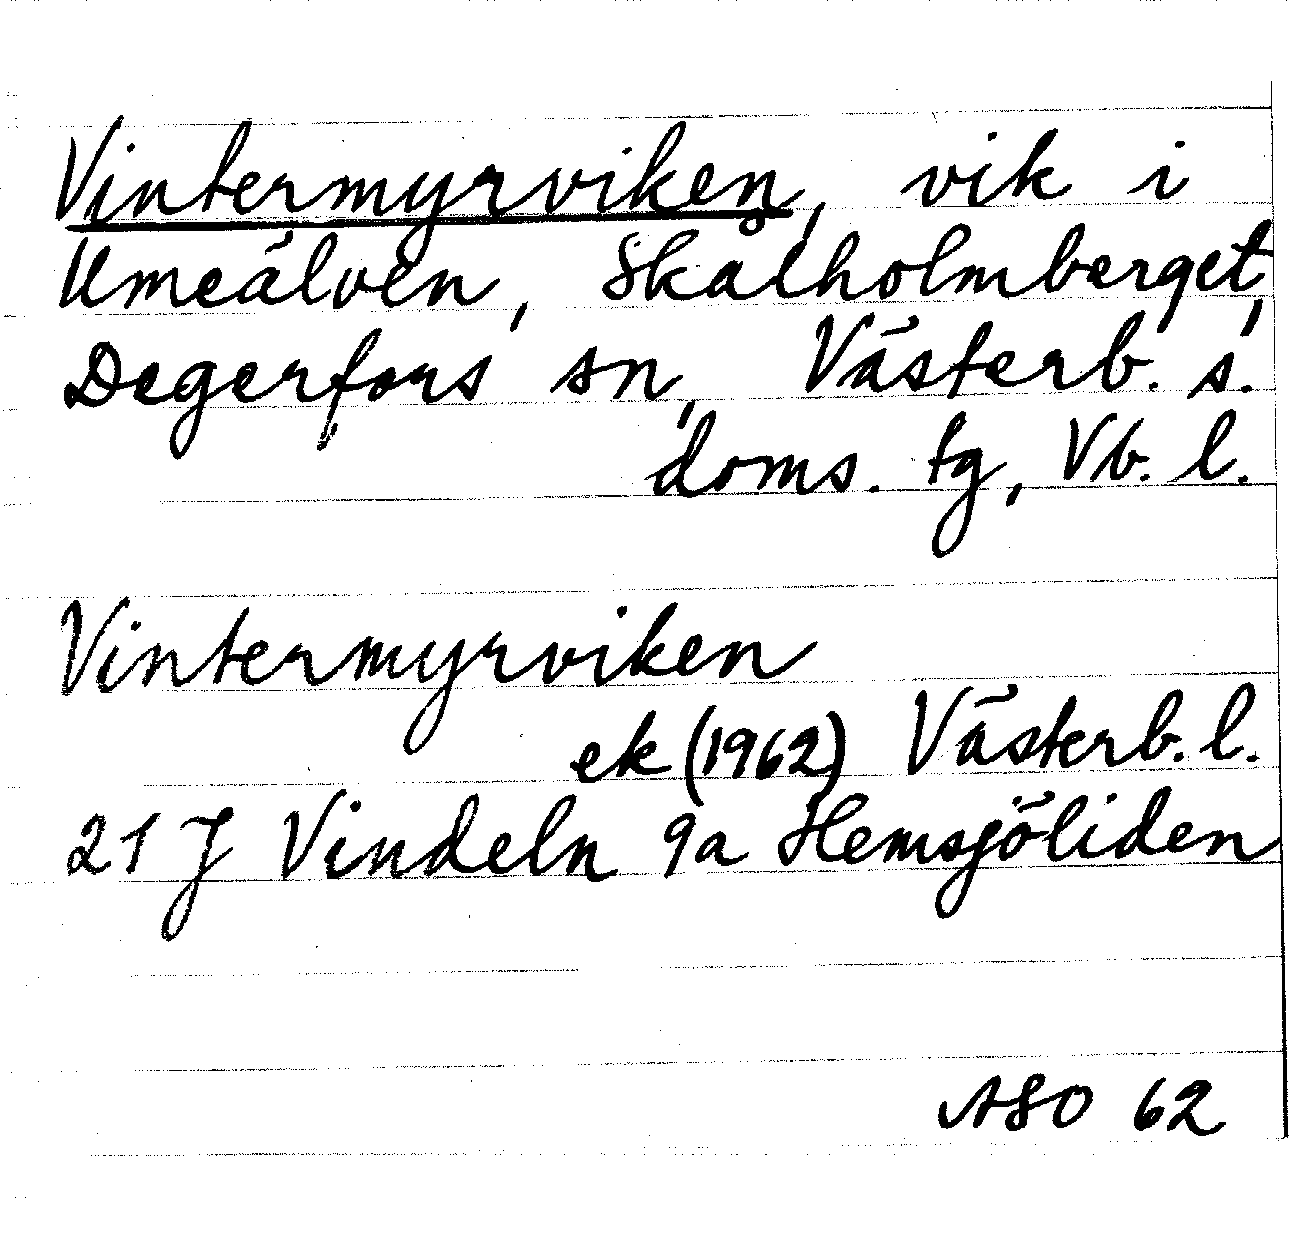 Vintermyrviken, vik i
Umeälven, Skålholmberget,
Degerfors sn, Västerb. s.
doms. tg, Vb. l.
Vintermyrviken
ek (1962) Västerb. l.
21 J Vindeln 9a Hemsjöliden
ASO 62